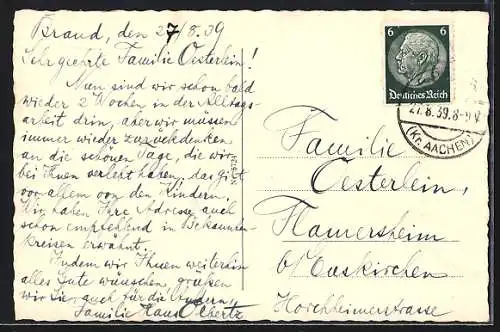 Brand, den 27/8.39
Sehr geehrte Familie Oesterlein!
Nun sind wir schon bald
wieder 2 Wochen in der Alltags-
arbeit drin, aber wir müssen
immer wieder zurückdenken
an die schönen Tage, die wir
bei Ihnen verlebt haben, das gilt
vor allem von den Kindern.
Wir haben Ihre Adresse auch
schon empfehlend in Bekannten-
Kreisen erwähnt.
Indem wir Ihnen weiterhin
alles Gute wünschen, grüßen
wir Sie, auch für die Kinder,
Familie Hans Olbertz
6 6
Deutsches Reich
27.8.39.8-9V
(Kr. AACHEN)
Familie
Oesterlein,
Flamersheim
b/ Euskirchen
Horchheimerstrasse